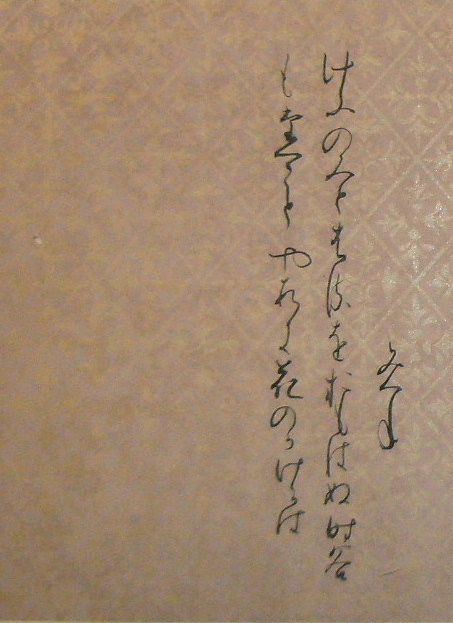 みつね
けふのみとはるをおもはぬ時谷
もたつことやすき花のかけかは